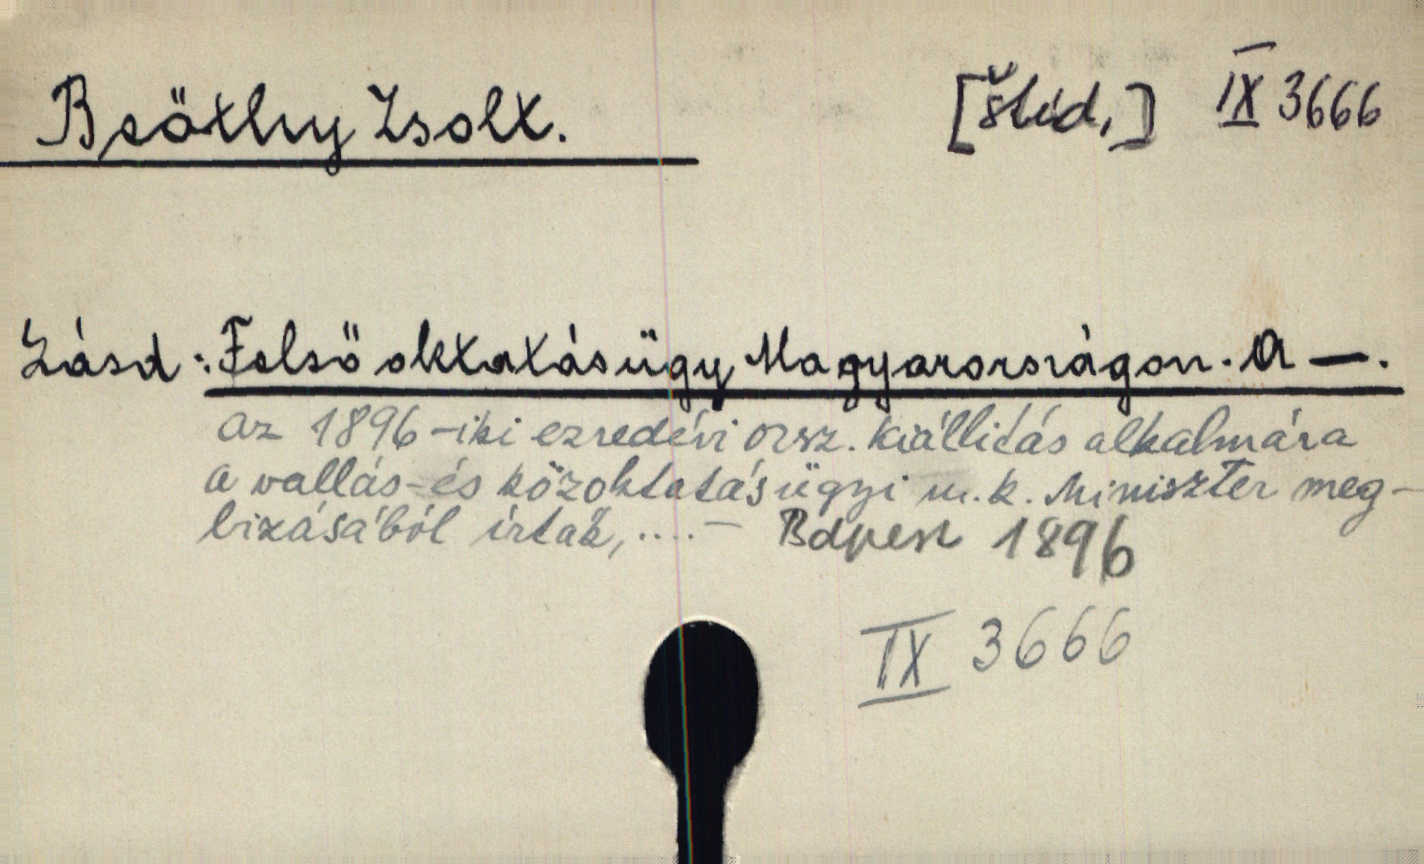 Beöthy Zsolt.
IX 3666
Lásd: Felső oktatásügy Magyarországon. A —.
az 1896-iki ezredévi orsz. kiállitás alkalmára
a vallás-és közoktatásügyi m. k. Miniszter meg-
bizásából irták, .... — Bdpest 1896
IX 3666